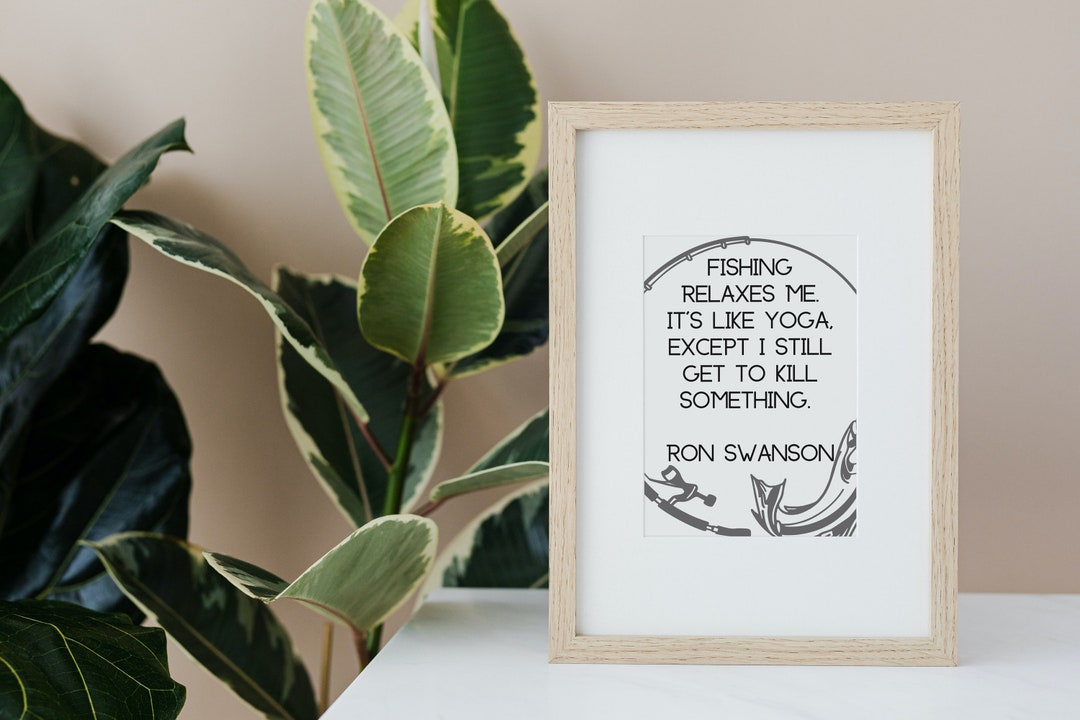 FISHING
RELAXES ME.
IT'S LIKE YOGA,
EXCEPT I STILL
GET TO KILL
SOMETHING.
RON SWANSON